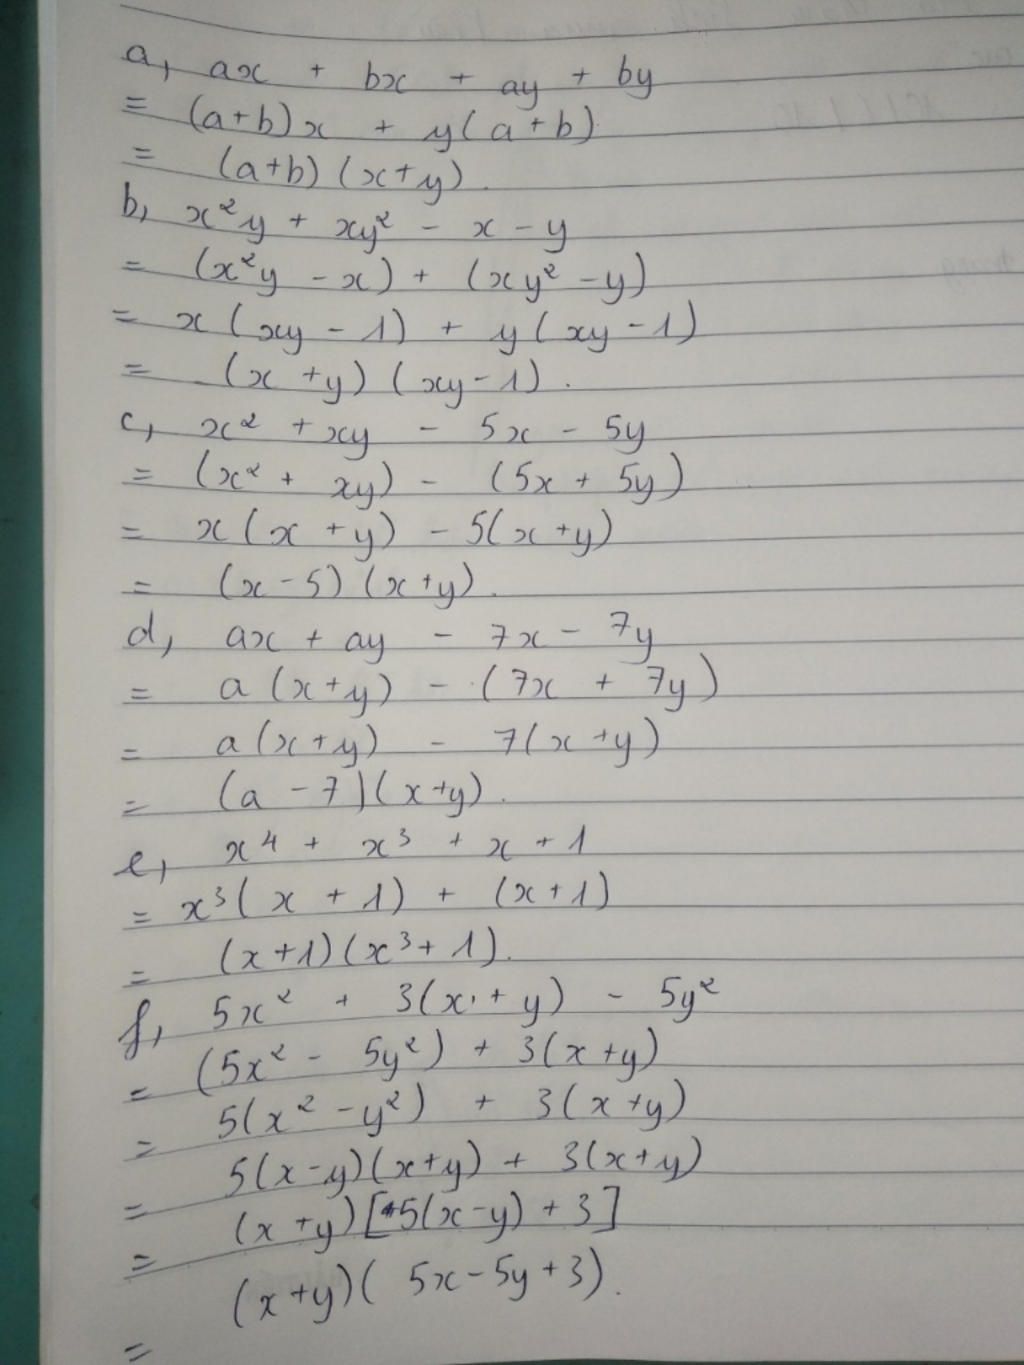 a, ax + bx + ay + by
= (a+b)x + y(a+b)
= (a+b)(x+y).
b, x²y + xy² - x - y
= (x²y - x) + (xy² - y)
= x(xy - 1) + y(xy - 1)
= (x + y)(xy - 1).
c, x² + xy - 5x - 5y
= (x² + xy) - (5x + 5y)
= x(x + y) - 5(x + y)
= (x - 5)(x + y).
d, ax + ay - 7x - 7y
= a(x+y) - (7x + 7y)
= a(x+y) - 7(x+y)
= (a - 7)(x+y).
e, x⁴ + x³ + x + 1
= x³(x + 1) + (x+1)
= (x+1)(x³+1).
f, 5x² + 3(x + y) - 5y²
= (5x² - 5y²) + 3(x+y)
= 5(x² - y²) + 3(x+y)
= 5(x-y)(x+y) + 3(x+y)
= (x+y)[5(x-y) + 3]
= (x+y)(5x - 5y + 3).